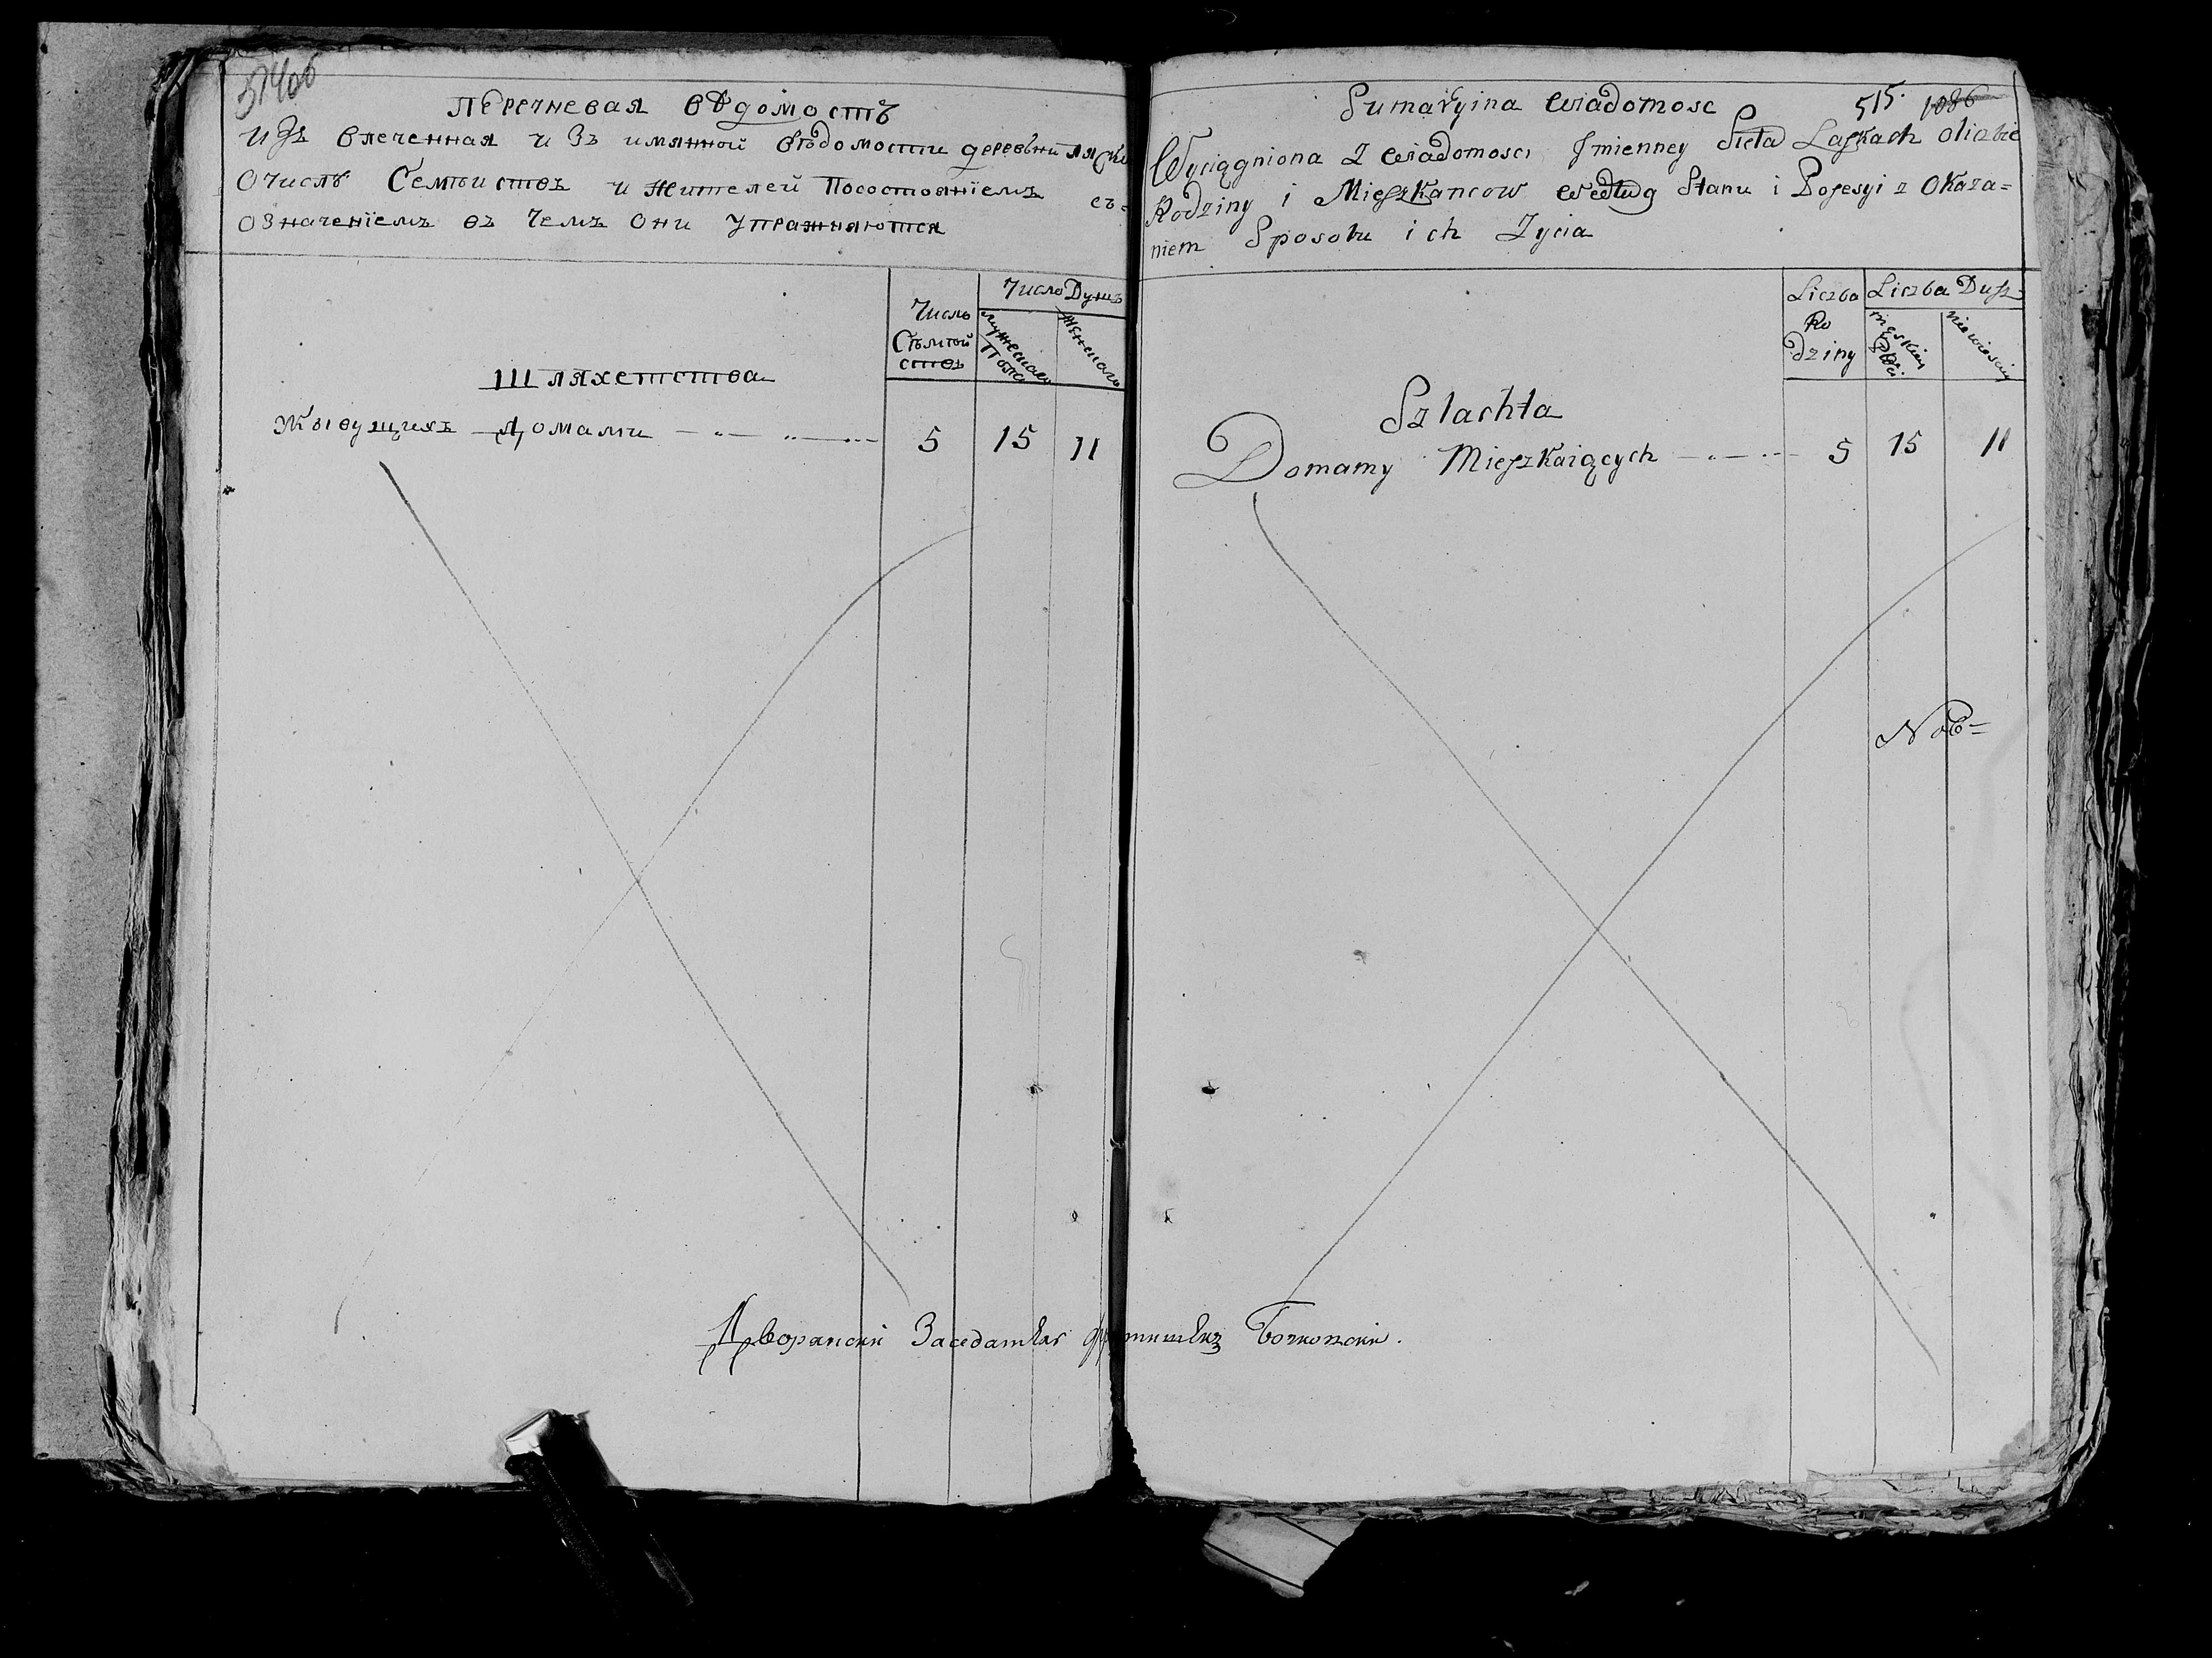 514об
Перечневая вѣдомостъ
Изъ влеченная и Зъ имянной вѣдомости деревни Ляски
О числѣ Семтьиствъ и жителей Посостоянїемъ съ=
означенїемъ въ чемъ они упражняются
Число Семтьй ствъ
Число Душъ
мужескаго Пола
женскаго
Шляхетства
Жывущихъ Домами 5 15 11
515. 1086
Sumaryina Wiadomosc
Wyciągniona z Wiadomosci Jmienney Sieła Laskach oliczbie
Rodziny i Mieszkancow według Stanu i Posesyi z Okaza=
niem Sposobu ich Zycia
Liczba Ro dziny
Liczba Dusz
męskiey Płci
niewiesciey
Szlachta
Domamy Mieszkaiących 5 15 11
Дворянскій Заседатель